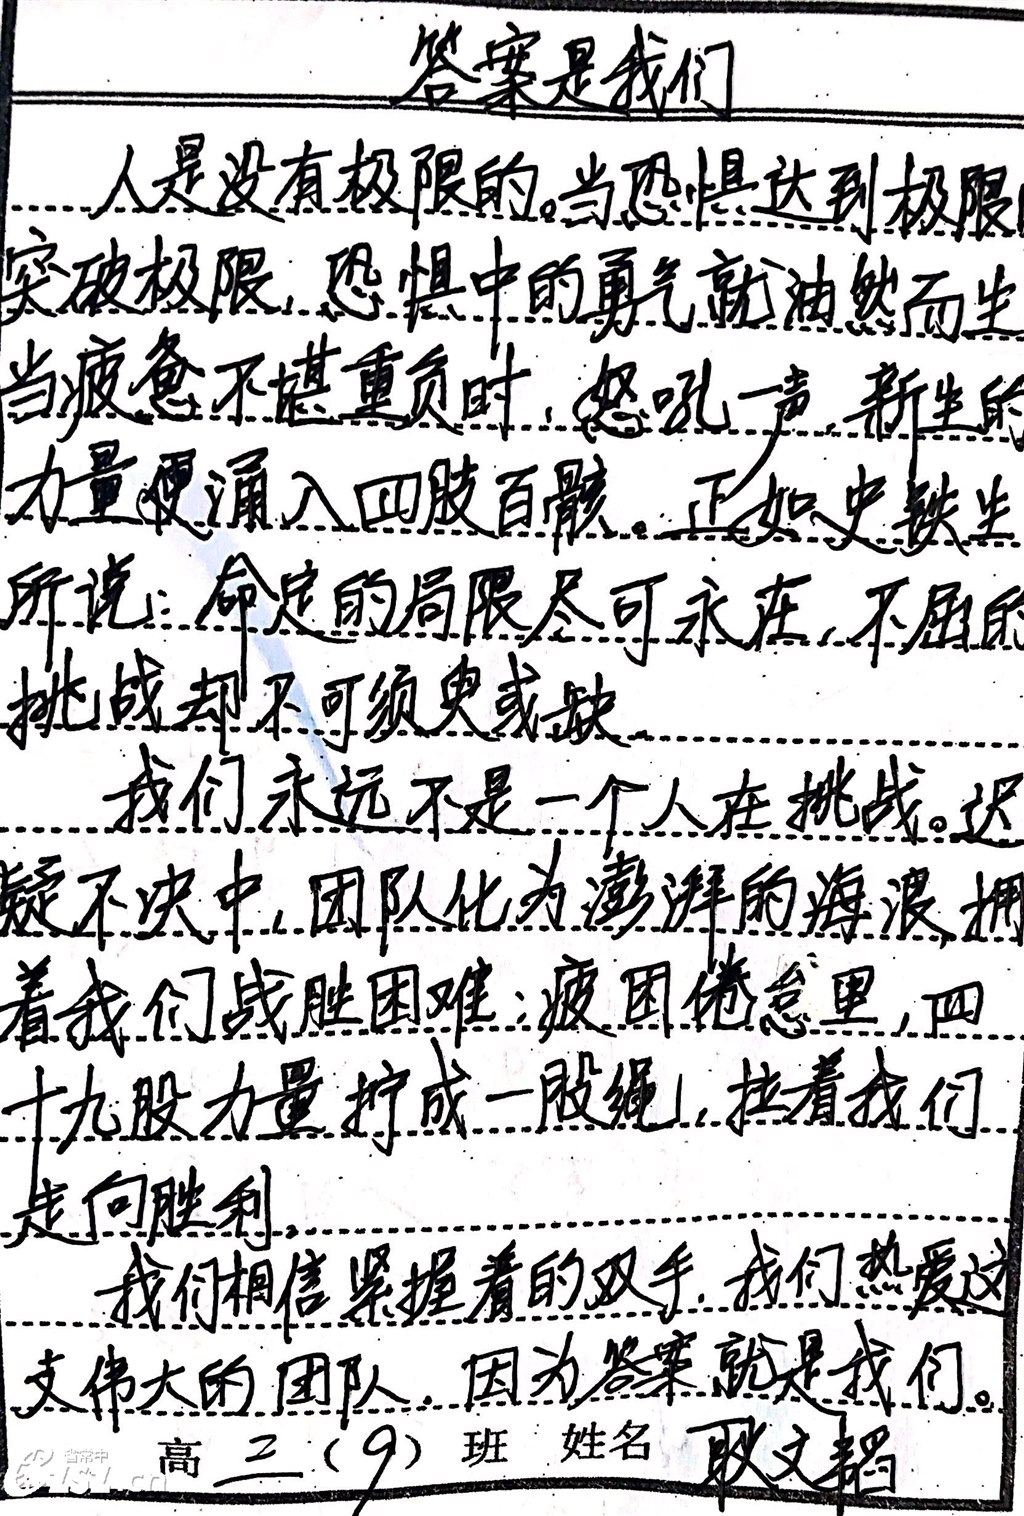 答案是我们
人是没有极限的。当恐惧达到极限
突破极限，恐惧中的勇气就油然而生
当疲惫不堪重负时，怒吼一声，新生的
力量便涌入四肢百骸。正如史铁生
所说：命定的局限尽可永在，不屈的
挑战却不可须臾或缺
我们永远不是一个人在挑战。迟
疑不决中，团队化为澎湃的海浪，拥
着我们战胜困难；疲困倦怠里，四
十九股力量拧成一股绳，拉着我们
走向胜利。
我们相信紧握着的双手，我们热爱这
支伟大的团队，因为答案就是我们。
高二（9）班 姓名 耿文韬
省常中